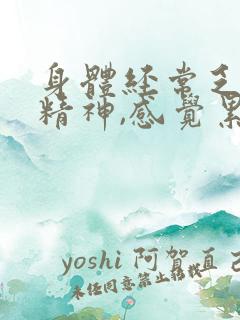 身體經常乏
精神,感覺累
yoshi 阿賀直己
未任同意禁止轉載